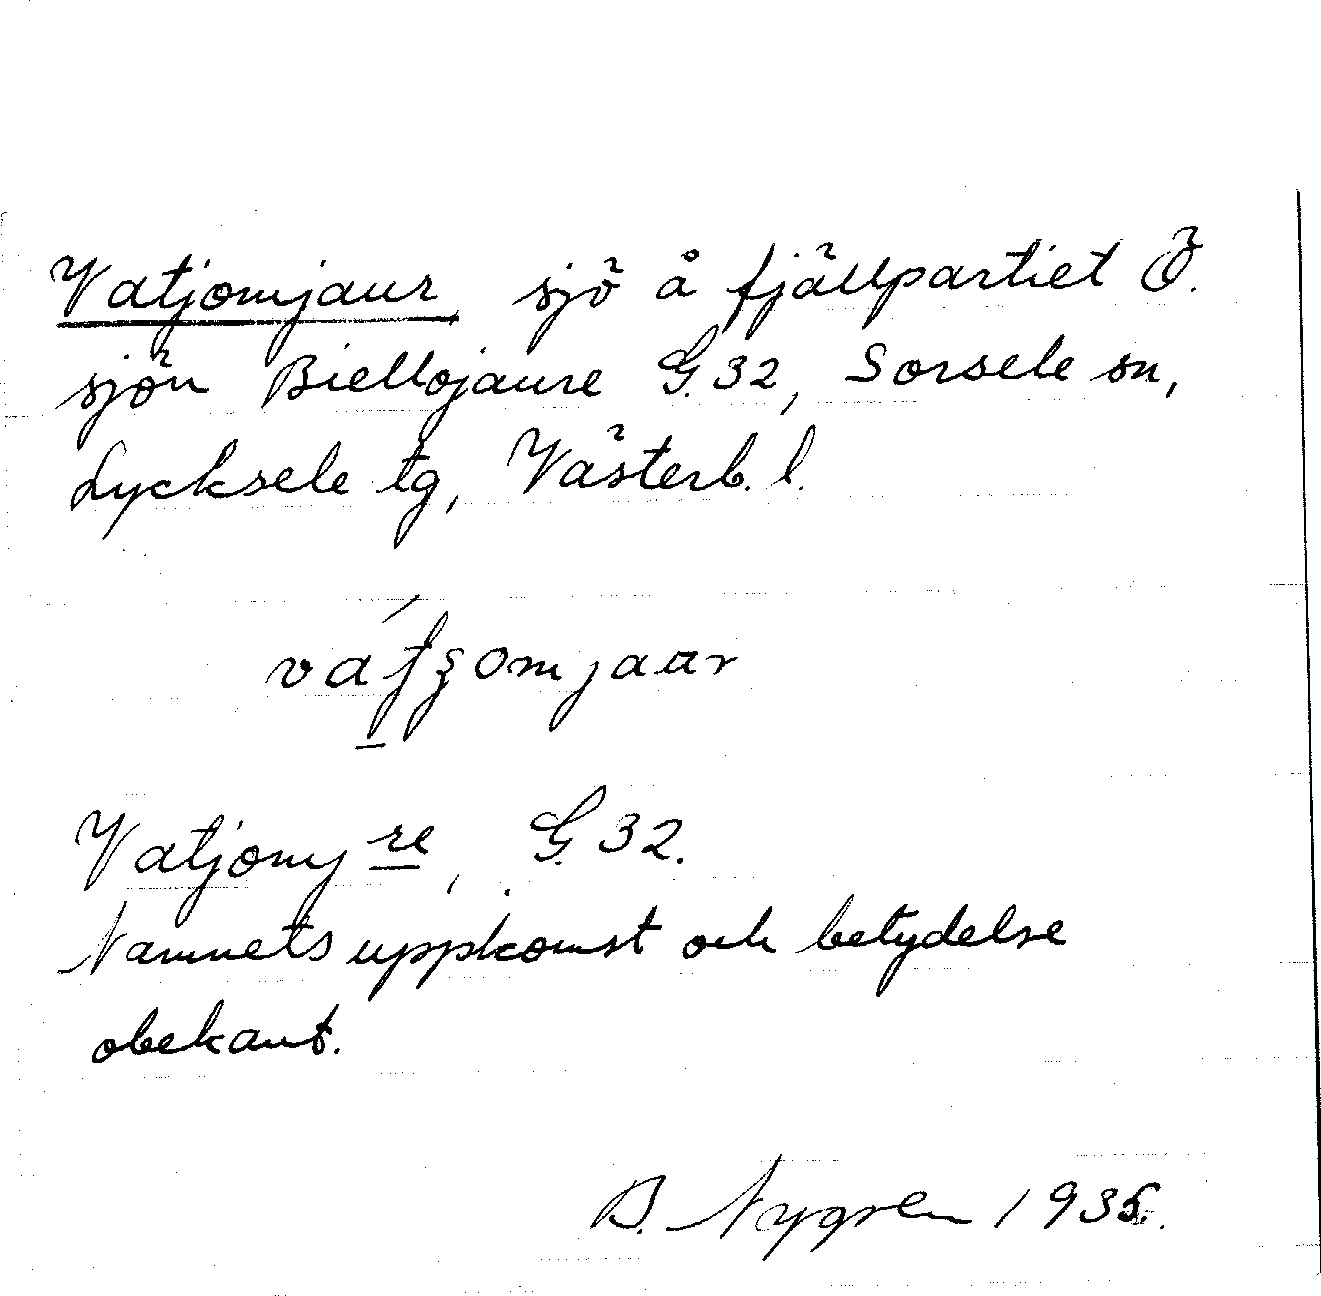 Vatjomjaur, sjö å fjällpartiet Ö.
sjön Biellojaure G. 32, Sorsele sn,
Lycksele tg, Västerb. l.
Vatjomj re, G. 32.
Namnets uppkomst och betydelse
obekant.
B. Nygren 1935.